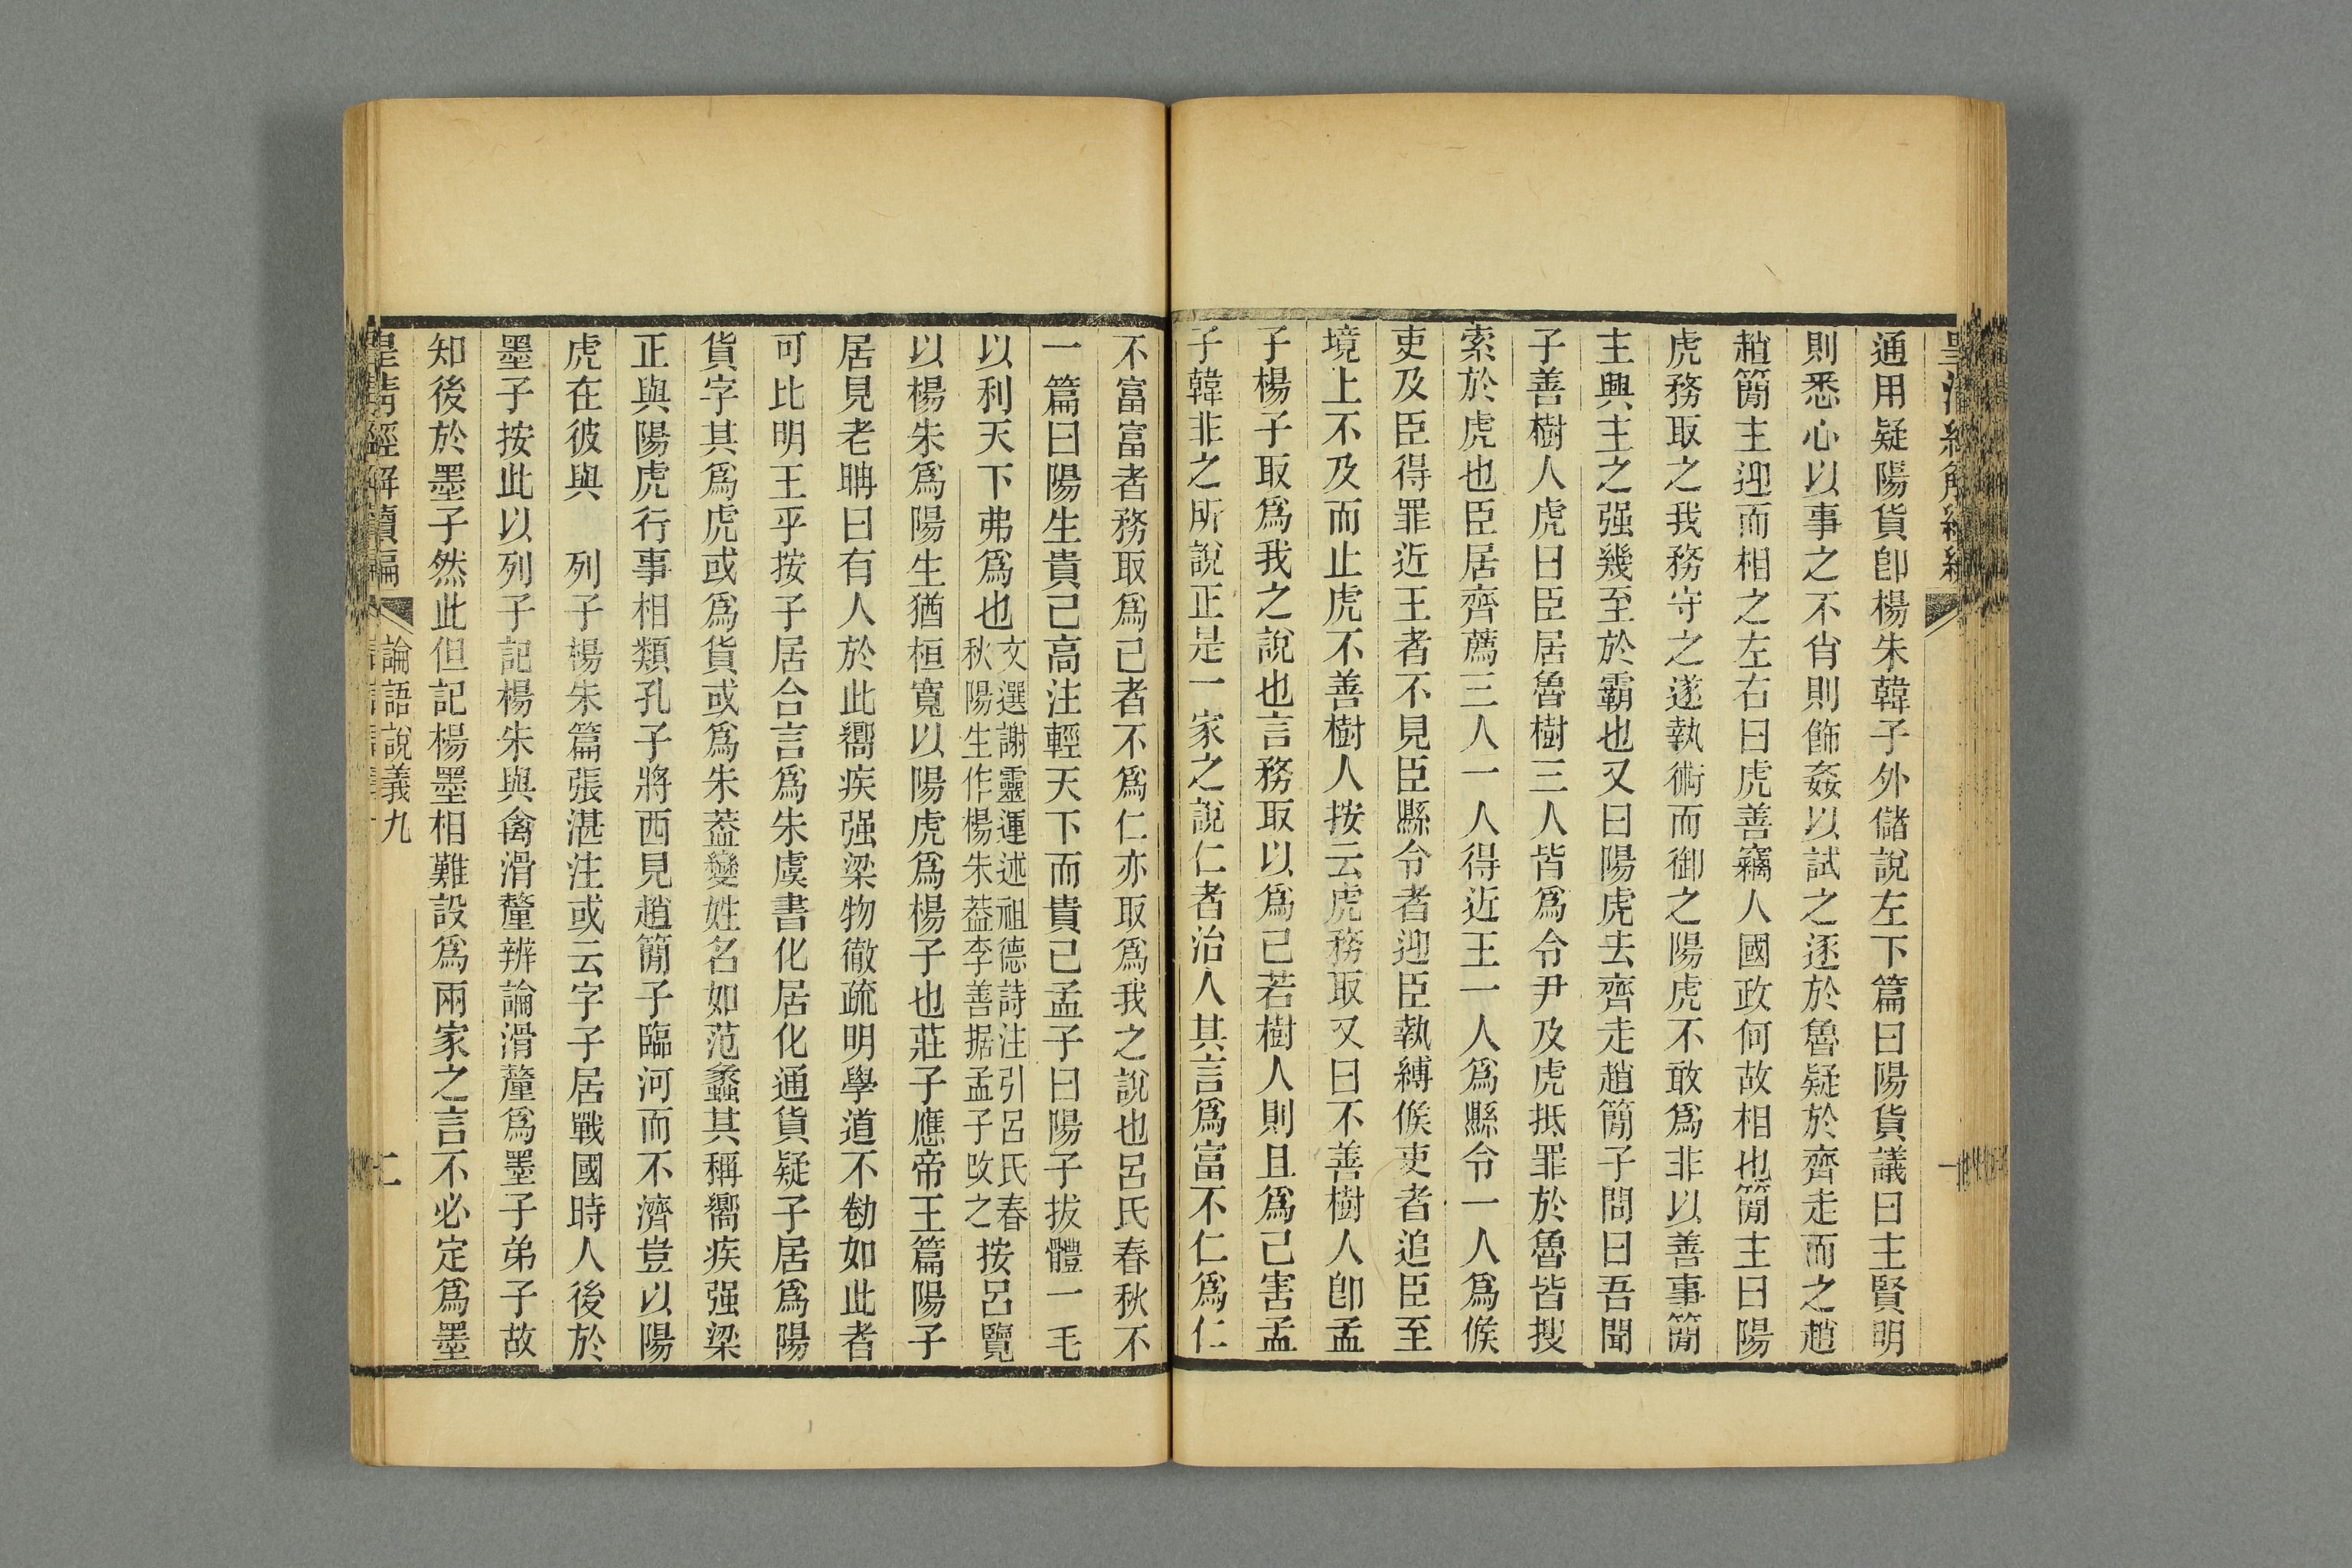 通用疑陽貨卽楊朱韓子外儲說左下篇曰陽貨議曰主賢明
則悉心以事之不肖則飾姦以試之逐於魯疑於齊走而之趙
趙簡主迎而相之左右曰虎善竊人國政何故相也簡主曰陽
虎務取之我務守之遂執術而御之陽虎不敢爲非以善事簡
主興主之强幾至於霸也又曰陽虎去齊走趙簡子問曰吾聞
子善樹人虎曰臣居魯樹三人皆爲令尹及虎抵罪於魯皆搜
索於虎也臣居齊薦三人一人得近王一人爲縣令一人爲候
吏及臣得罪近王者不見臣縣令者迎臣執縛候吏者追臣至
境上不及而止虎不善樹人按云虎務取又曰不善樹人卽孟
子楊子取爲我之說也言務取以爲己若樹人則且爲己害孟
子韓非之所說正是一家之說仁者治人其言爲富不仁爲仁
不富富者務取爲己者不爲仁亦取爲我之說也呂氏春秋不
一篇曰陽生貴己高注輕天下而貴己孟子曰陽子拔體一毛
以利天下弗爲也文選謝靈運述祖德詩注引呂氏春秋陽生作楊朱葢李善据孟子攺之按呂覽
以楊朱爲陽生猶桓寬以陽虎爲楊子也莊子應帝王篇陽子
居見老聃曰有人於此嚮疾强梁物徹疏明學道不勌如此者
可比明王乎按子居合言爲朱虞書化居化通貨疑子居爲陽
貨字其爲虎或爲貨或爲朱葢變姓名如范蠡其稱嚮疾强梁
正與陽虎行事相類孔子將西見趙簡子臨河而不濟豈以陽
虎在彼與　列子楊朱篇張湛注或云字子居戰國時人後於
墨子按此以列子記楊朱與禽滑釐辨論滑釐爲墨子弟子故
知後於墨子然此但記楊墨相難設爲兩家之言不必定爲墨
皇淸經解續編
論語說義九
二